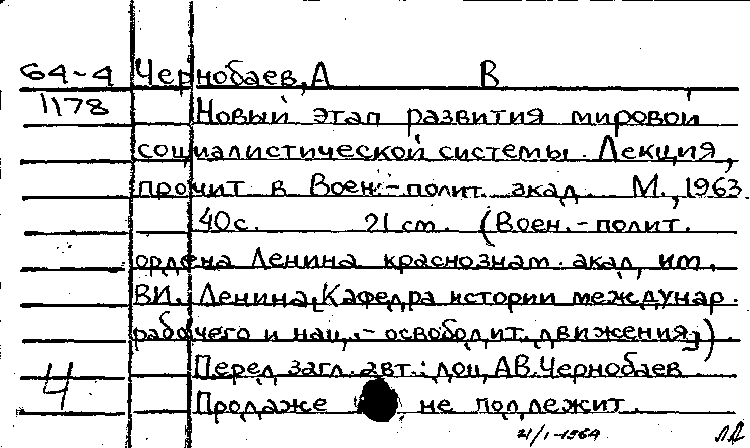 64-4 Чернобаев, А В
1178 Новый этап развития мировой
социалистической системы. Лекция,
прочит в Воен.-полит. акад. М., 1963.
40с. 21 см. (Воен.-полит.
ордена Ленина краснознам. акад. им.
В.И. Ленина. [Кафедра истории междунар.
рабочего и нац.-освободит. движения])
Перед загл. авт.: доц. А.В. Чернобаев
4 Продаже не подлежит.
21/I-1964